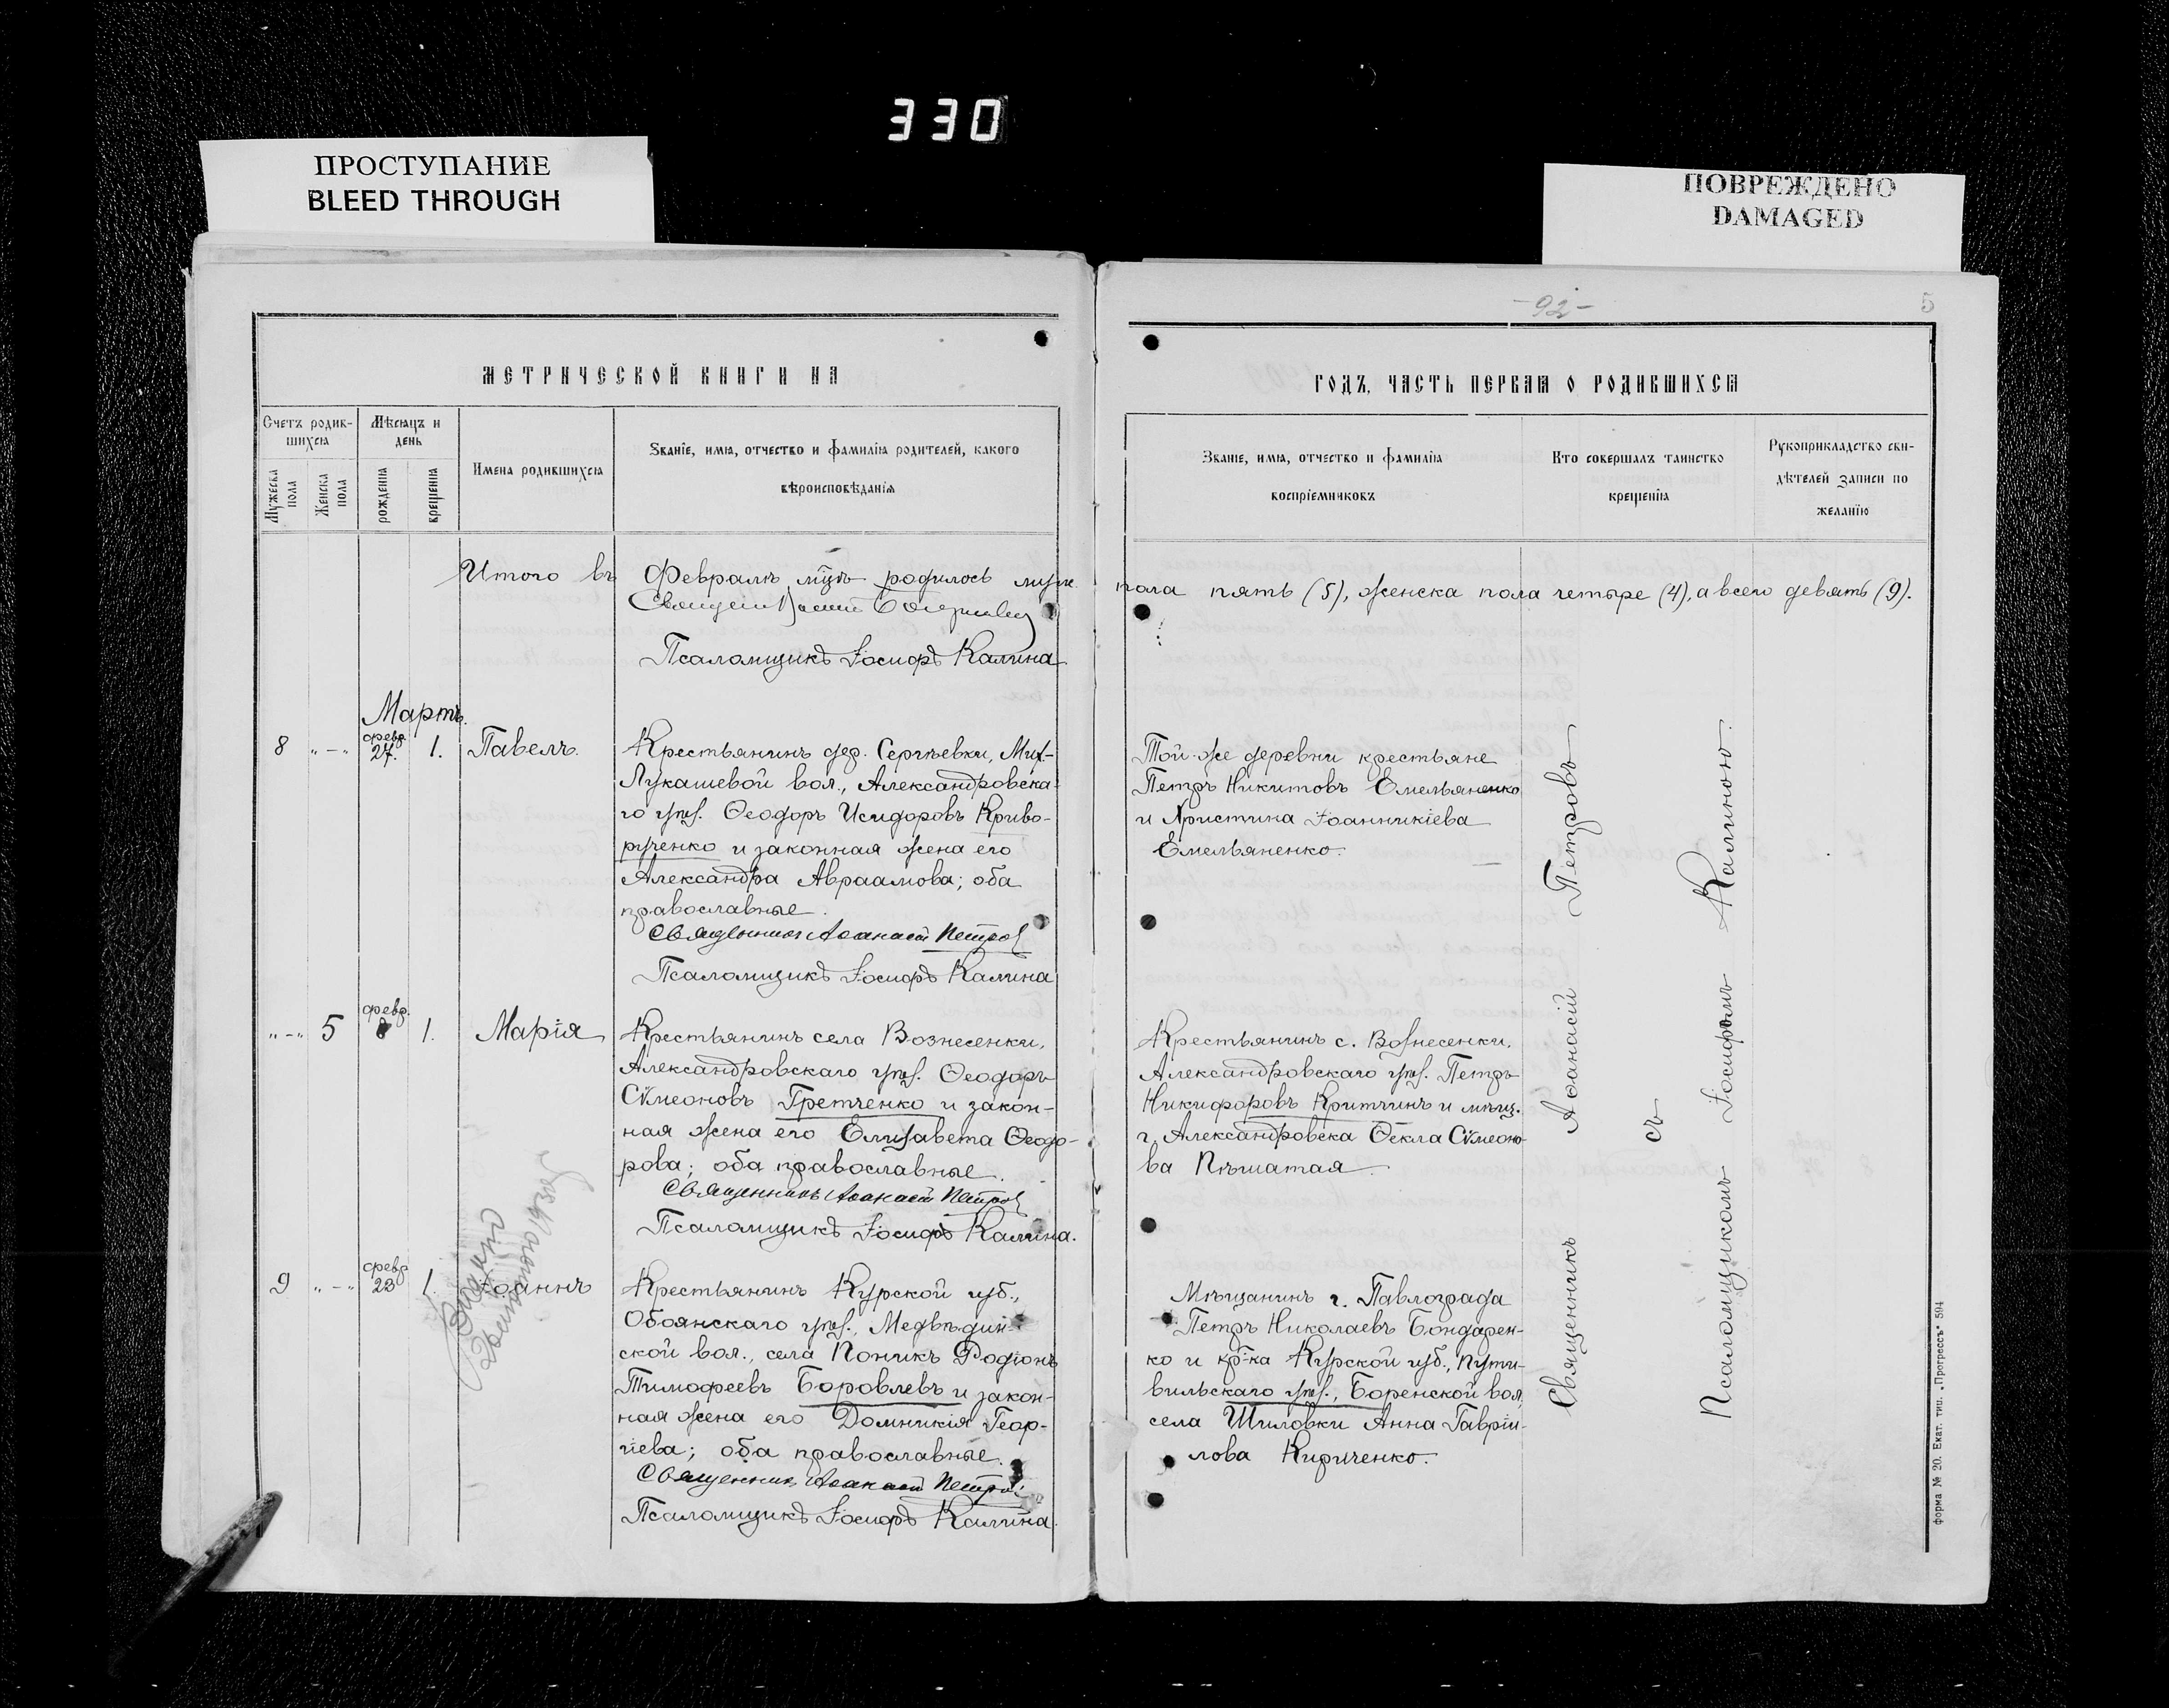 330
ПРОСТУПАНИЕ
BLEED THROUGH
ПОВРЕЖДЕНО
DAMAGED
МЕТРИЧЕСКОЙ КНИГИ НА
Счетъ родив-
шихся
Мужеска
пола
Женска
пола
Мѣсяцъ и
день
рожденія
крещенія
Имена родившихся
Званіе, имя, отчество и фамилія родителей, какого
вѣроисповѣданія
Итого въ Февралѣ мцѣ родилось муж.
Псаломщикъ Іосифъ Калина
Мартъ.
8 "-" февр. 27. 1. Павелъ.
Крестьянинъ дер. Сергѣевки, Мих.-
Лукашевой вол., Александровска-
го уѣз. Ѳеодоръ Исидоровъ Криво-
рученко и законная жена его
Александра Авраамова; оба
православные.
Священникъ Аѳанасій Петровъ
Псаломщикъ Іосифъ Калина
"-" 5 февр. 8 1. Марія
Крестьянинъ села Вознесенки,
Александровскаго уѣз. Ѳеодоръ
Сѵмеоновъ Гретченко и закон-
ная жена его Елизавета Ѳеодо-
рова; оба православные.
Священникъ Аѳанасій Петровъ
Псаломщикъ Іосифъ Калина.
9 "-" февр. 23 1. Іоаннъ
Крестьянинъ Курской губ.,
Обоянскаго уѣз., Медвѣдин-
ской вол., села Поникъ Родіонъ
Тимофеевъ Боровлевъ и закон-
ная жена его Домникія Геор-
гіева; оба православные.
Священникъ Аѳанасій Петровъ
Псаломщикъ Іосифъ Калина.
-92-
5
ГОДЪ, ЧАСТЬ ПЕРВАЯ О РОДИВШИХСЯ
Званіе, имя, отчество и фамилія
воспріемниковъ
Кто совершалъ таинство
крещенія
Рукоприкладство сви-
дѣтелей записи по
желанію
пола пять (5), женска пола четыре (4), а всего девять (9).
Той-же деревни крестьяне
Петръ Никитовъ Емельяненко
и Христина Іоанникіева
Емельяненко.
Крестьянинъ с. Вознесенки,
Александровскаго уѣз. Петръ
Никифоровъ Критчинъ и мѣщ.
г. Александровска Ѳекла Сѵмеоно-
ва Пѣшатая.
Мѣщанинъ г. Павлограда
Петръ Николаевъ Бондарен-
ко и кр-ка Курской губ., Пути-
вильскаго уѣз., Боренской вол,
села Шиловки Анна Гавріи-
лова Кириченко.
Священникъ Аѳанасій Петровъ
съ
Псаломщикомъ Іосифомъ Калиною.
Форма № 20. Екат. тип. „Прогрессъ" 594